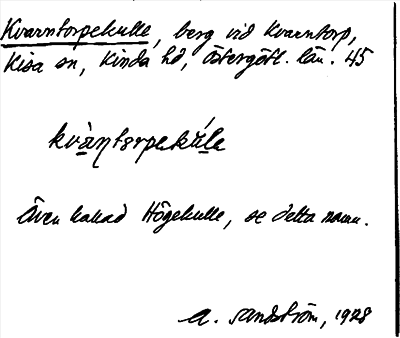 Kvarntorpekulle, berg vid Kvarntorp,
Kisa sn, Kinda hd, Östergötl. län. 45
kvàn̥torpekúle
Även kallad Högekulle, se detta namn.
A. Sandström, 1928